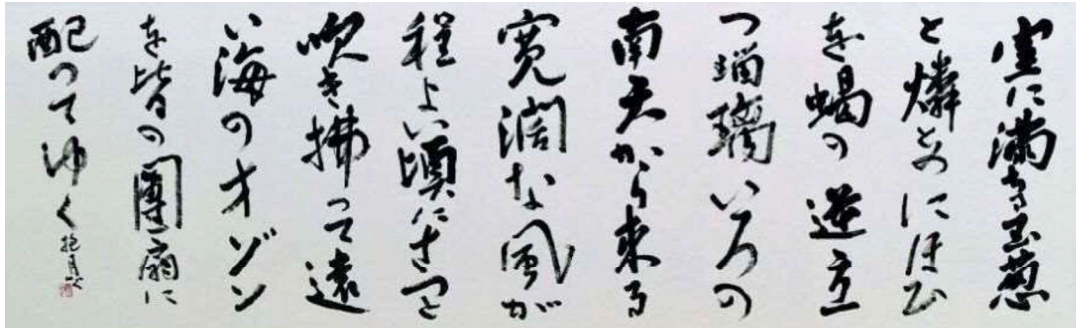 室に満ちる玉葱
と燐とのにほひ
を蝎の逆立
つ瑠璃いろの
南天から来る
寛濶な風が
程よい頃にさつと
吹き拂って遠
い海のオゾン
を皆の團扇に
配つてゆく